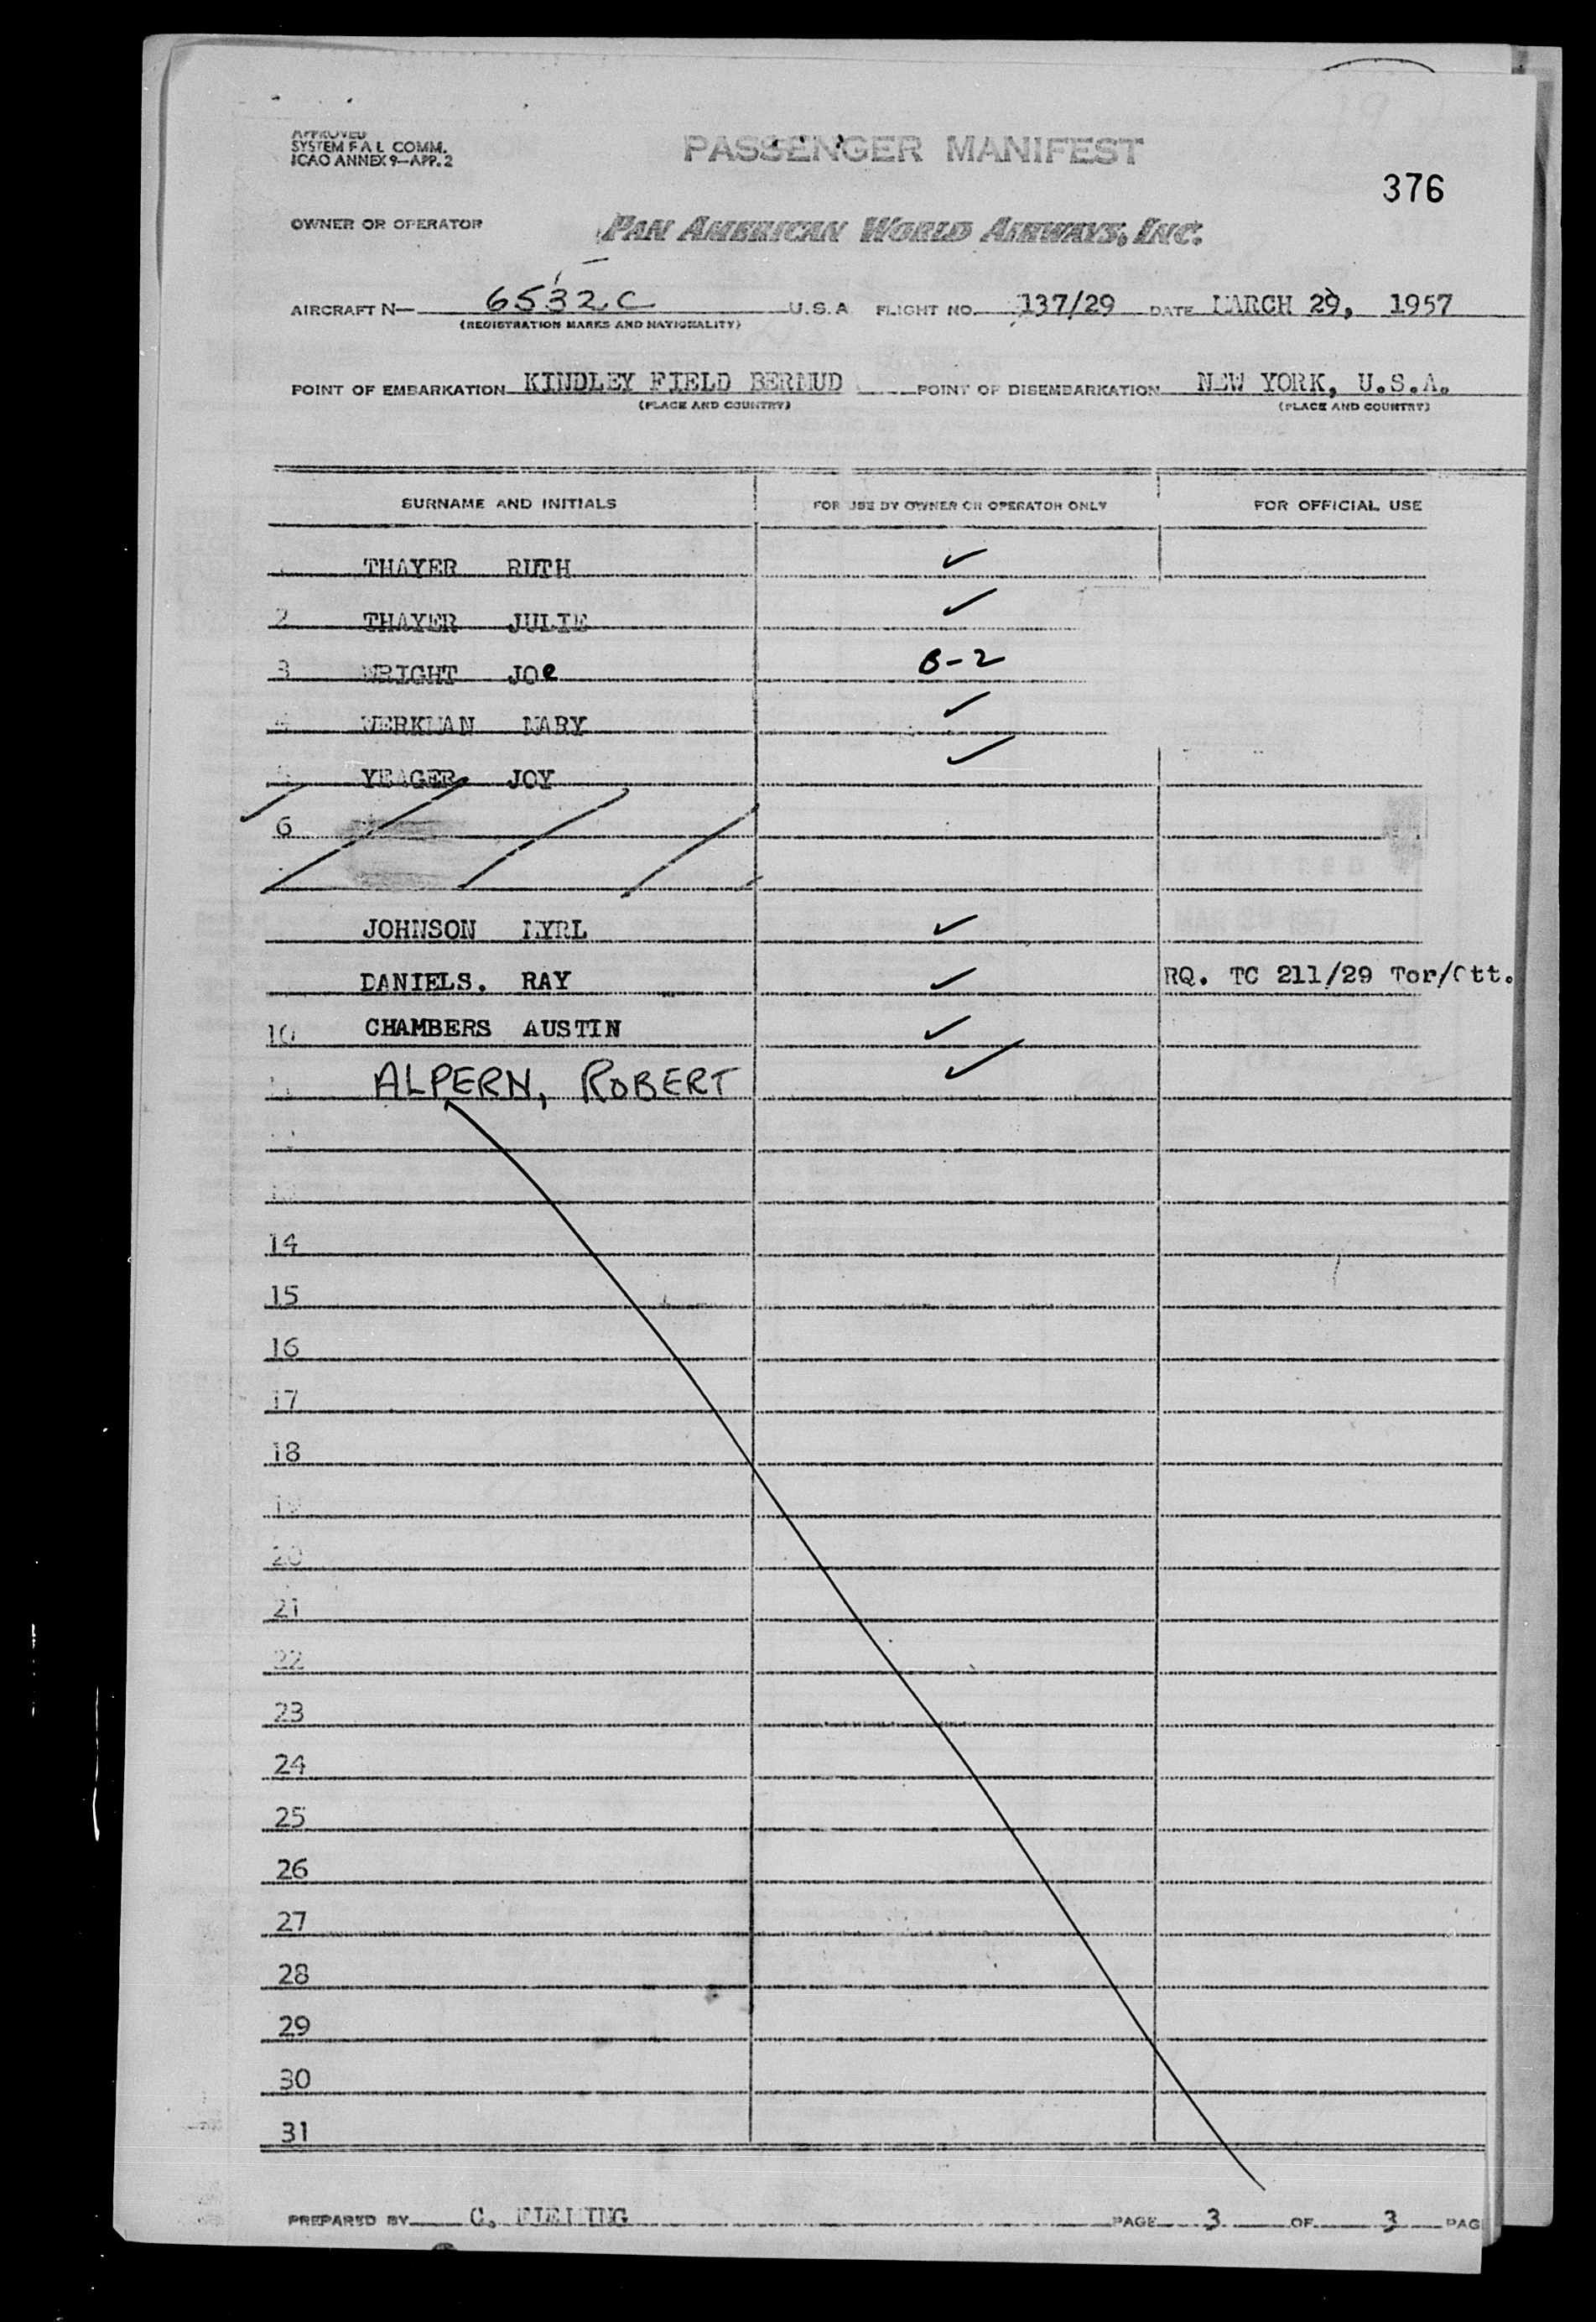 APPROVED
SYSTEM F A L COMM.
ICAO ANNEX 9—APP. 2
PASSENGER MANIFEST
376
OWNER OR OPERATOR PAN AMERICAN WORLD AIRWAYS, INC.
AIRCRAFT N— 6532C U.S.A. FLIGHT NO. 137/29 DATE MARCH 29, 1957
(REGISTRATION MARKS AND NATIONALITY)
POINT OF EMBARKATION KINDLEY FIELD BERMUD POINT OF DISEMBARKATION NEW YORK, U.S.A.
(PLACE AND COUNTRY) (PLACE AND COUNTRY)
SURNAME AND INITIALS FOR USE BY OWNER OR OPERATOR ONLY FOR OFFICIAL USE
THAYER RUTH ✓
2 THAYER JULIE ✓
3 WRIGHT JOe B-2
4 WERKMAN MARY ✓
5 YEAGER JOY ✓
6
JOHNSON MYRL ✓
DANIELS. RAY ✓ RQ. TC 211/29 Tor/Ott.
10 CHAMBERS AUSTIN ✓
11 ALPERN, ROBERT ✓
13
14
15
16
17
18
19
20
21
22
23
24
25
26
27
28
29
30
31
PREPARED BY C. PAGE 3 OF 3 PAG